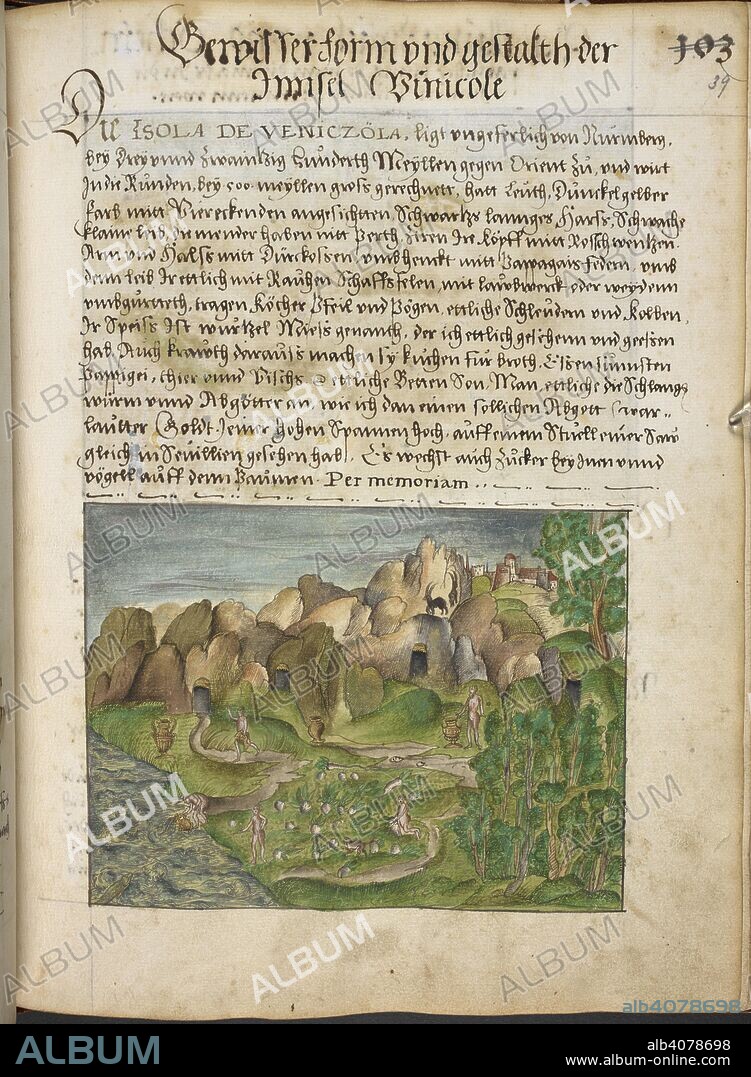 Gewisser form vnd gestalth der
103
39
Innsel Vinicole
Die ISOLA DE VENICZÖLA, ligt vngeferlich von Nürmberg,
bey Drey vnnd Zwaintzig Hunderth Meyllen gegen Orient Zů, vnd wirt
In die Runden, bey 500. meyllen gross gerechnett, hatt Leuth, Dunckel gelber
farb mitt Viereckenden angesichtten, Schwartzs lannges Harss, Schwache
klaine leib, die mender haben mitt Perth, Ziren Ire Köpff mitt Rosschwentzen
Arm vnd Halss mitt Durckossen, vmbhenckt mitt Pappagais federn, vmb
denn leib Ir ettlich mit Rauhen Schaffsfelen, mit laubwerck oder weyden
vmbgürtteth, tragen, Köcher Pfeil vnd Pögen, ettliche Schleudern vnd Kolben,
Ir Speiss Ist wurtzel Miess genanth, der ich ettlich gesehenn vnd geessen
hab, Auch krawth darauss machen sy kuchen für broth. Essen sunnsten
Pappigei, thier vnnd Vischs. Ettliche Betten Son, Man, ettliche die Schlangs
würm vnnd Abgötter an, wie ich dan einen sollichen Abgott war
lautter Goldt. Jener hohen Spannen hoch, auff einem Stuell einer Saw
gleich in Sevillien gesehen hab. Es wechst auch Zucker bey Inen vnnd
vögell auff denn Paumen. Per memoriam
ALBUM
alb4078698
ALBUM
alb4078698
www.album-online.com